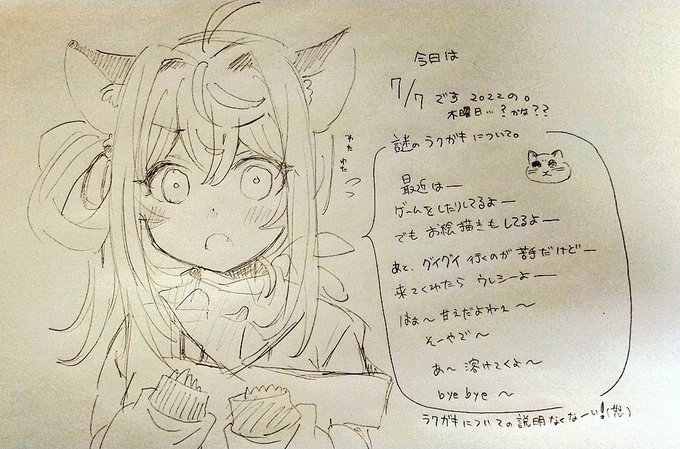 今日は
7/7 です 2022の。
木曜日…？かな？？
謎のラクガキについて。
わた わた
最近はー
ゲームをしたりしてるよー
でもお絵描きもしてるよー
あと、グイグイ行くのが苦手だけどー
来てくれたらウレシーよー
はぁ〜甘えだよねぇ〜
そーやで〜
あ〜溶けてくよ〜
bye bye 〜
ラクガキについての説明なくなーい!(怒)